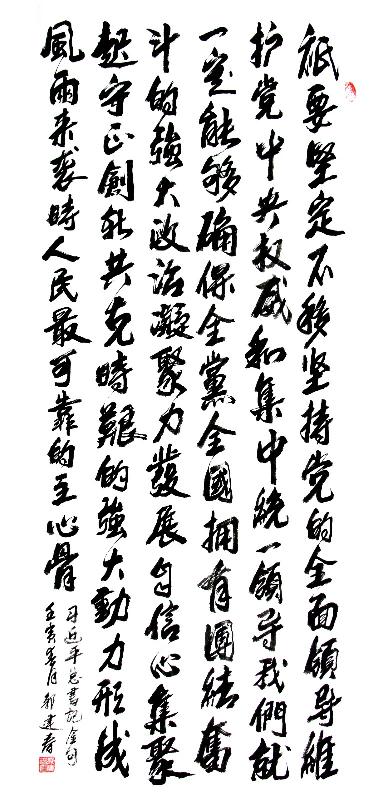 祇要堅定不移坚持党的全面領导維
护党中央权威和集中統一領导我們就
一定能够确保全黨全國拥有團結奮
斗的強大政治凝聚力發展自信心集聚
起守正創新共克時艱的強大動力形成
風雨来袭時人民最可靠的主心骨
习近平总書記金句
壬寅春月